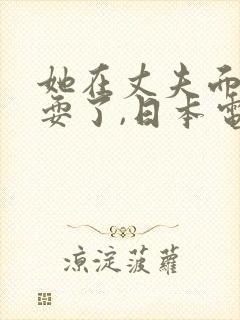 她在丈夫而
耍了,日本電
凉淀菠蘿